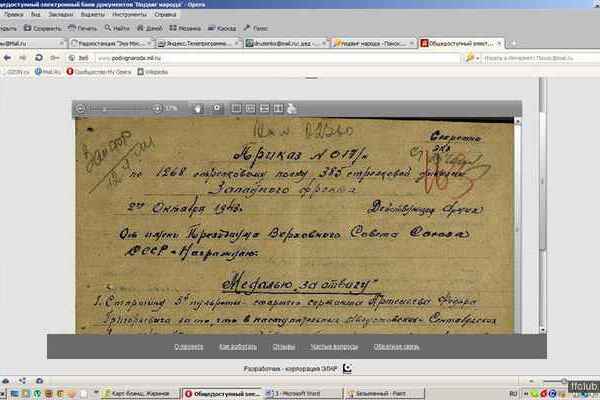 общедоступный электронный банк документов "Подвиг народа" - Opera
Вид Закладки Виджеты Инструменты Справка
Открыть Сохранить Печать Найти Домой Мозаика Каскад
Радиостанция "Эхо Мос Яндекс.Телепрограмм подвиг народа - Поиск Общедоступный элект
Веб www.podvignaroda.mil.ru Искать в Интернет: Поиск@mail.ru
OZON.ru Mail.Ru Сообщество My Opera Wikipedia
37%
Секретно
Приказ N 017/н
по 1268 стрелковому полку 385 стрелковой дивизии
Западного фронта
2 Октября 1943. Действующая Армия
От имени Президиума Верховного Совета Союза
ССР - Награждаю:
Медалью "за отвагу"
1. старшего сержанта Федора
Григорьевича за то, что в наступательных
О проекте Как работать Отзывы Частые вопросы Обратная связь
Разработчик - корпорация ЭЛАР
Карт-бланш, Жаринов Общедоступный эле 3 - Microsoft Word Безымянный - Paint RU
ffclub.